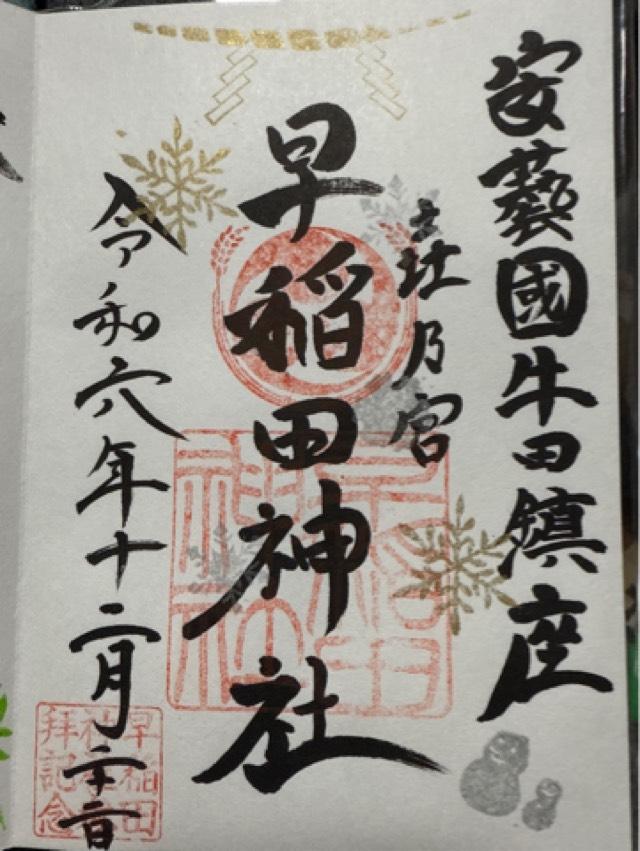 安藝國牛田鎮座
乃宮
早稲田神社
令和六年十二月
早稲田神社
早稲田
拝記念